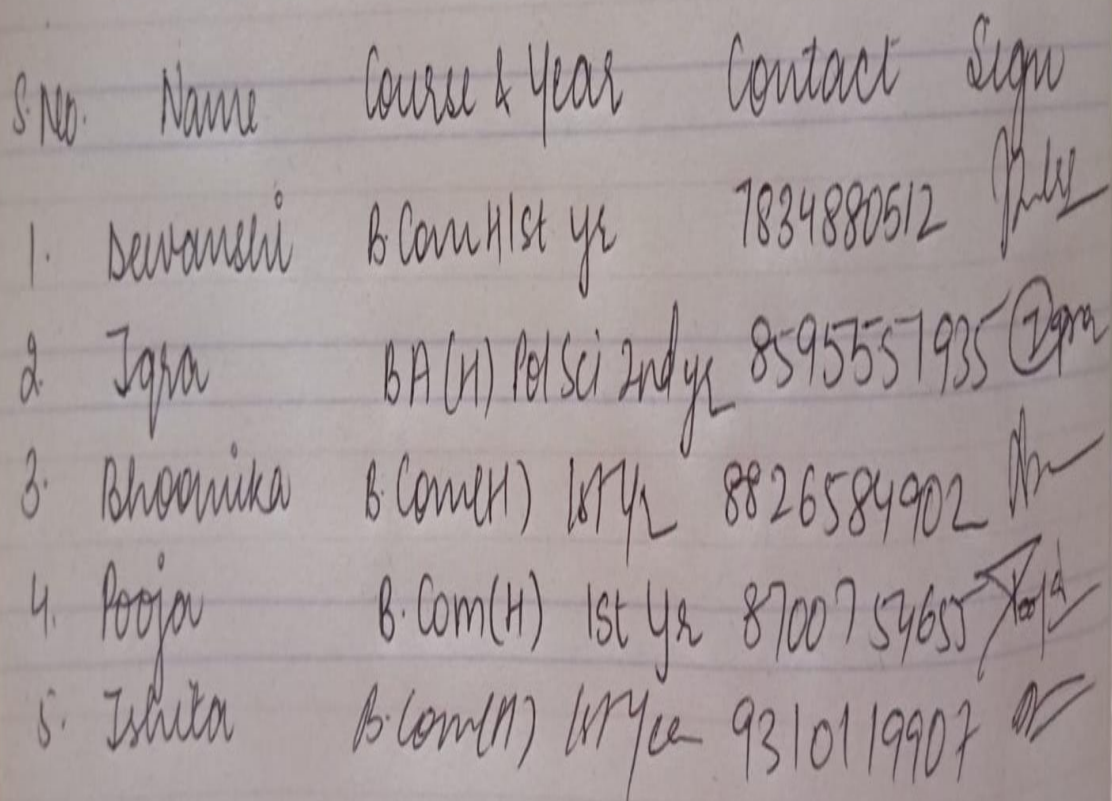 S.No. Name Course & Year Contact Sign
1. Dewanshi B.Com H 1st yr 7834880512
2. Iqra BA(H) Pol Sci 2nd yr 8595557935 Iqra
3. Bhoomika B.Com(H) 1st Yr 8826584902
4. Pooja B.Com(H) 1st Yr 8700754655 Pooja
5. Ishita B.Com(H) 1st Year 9310119907